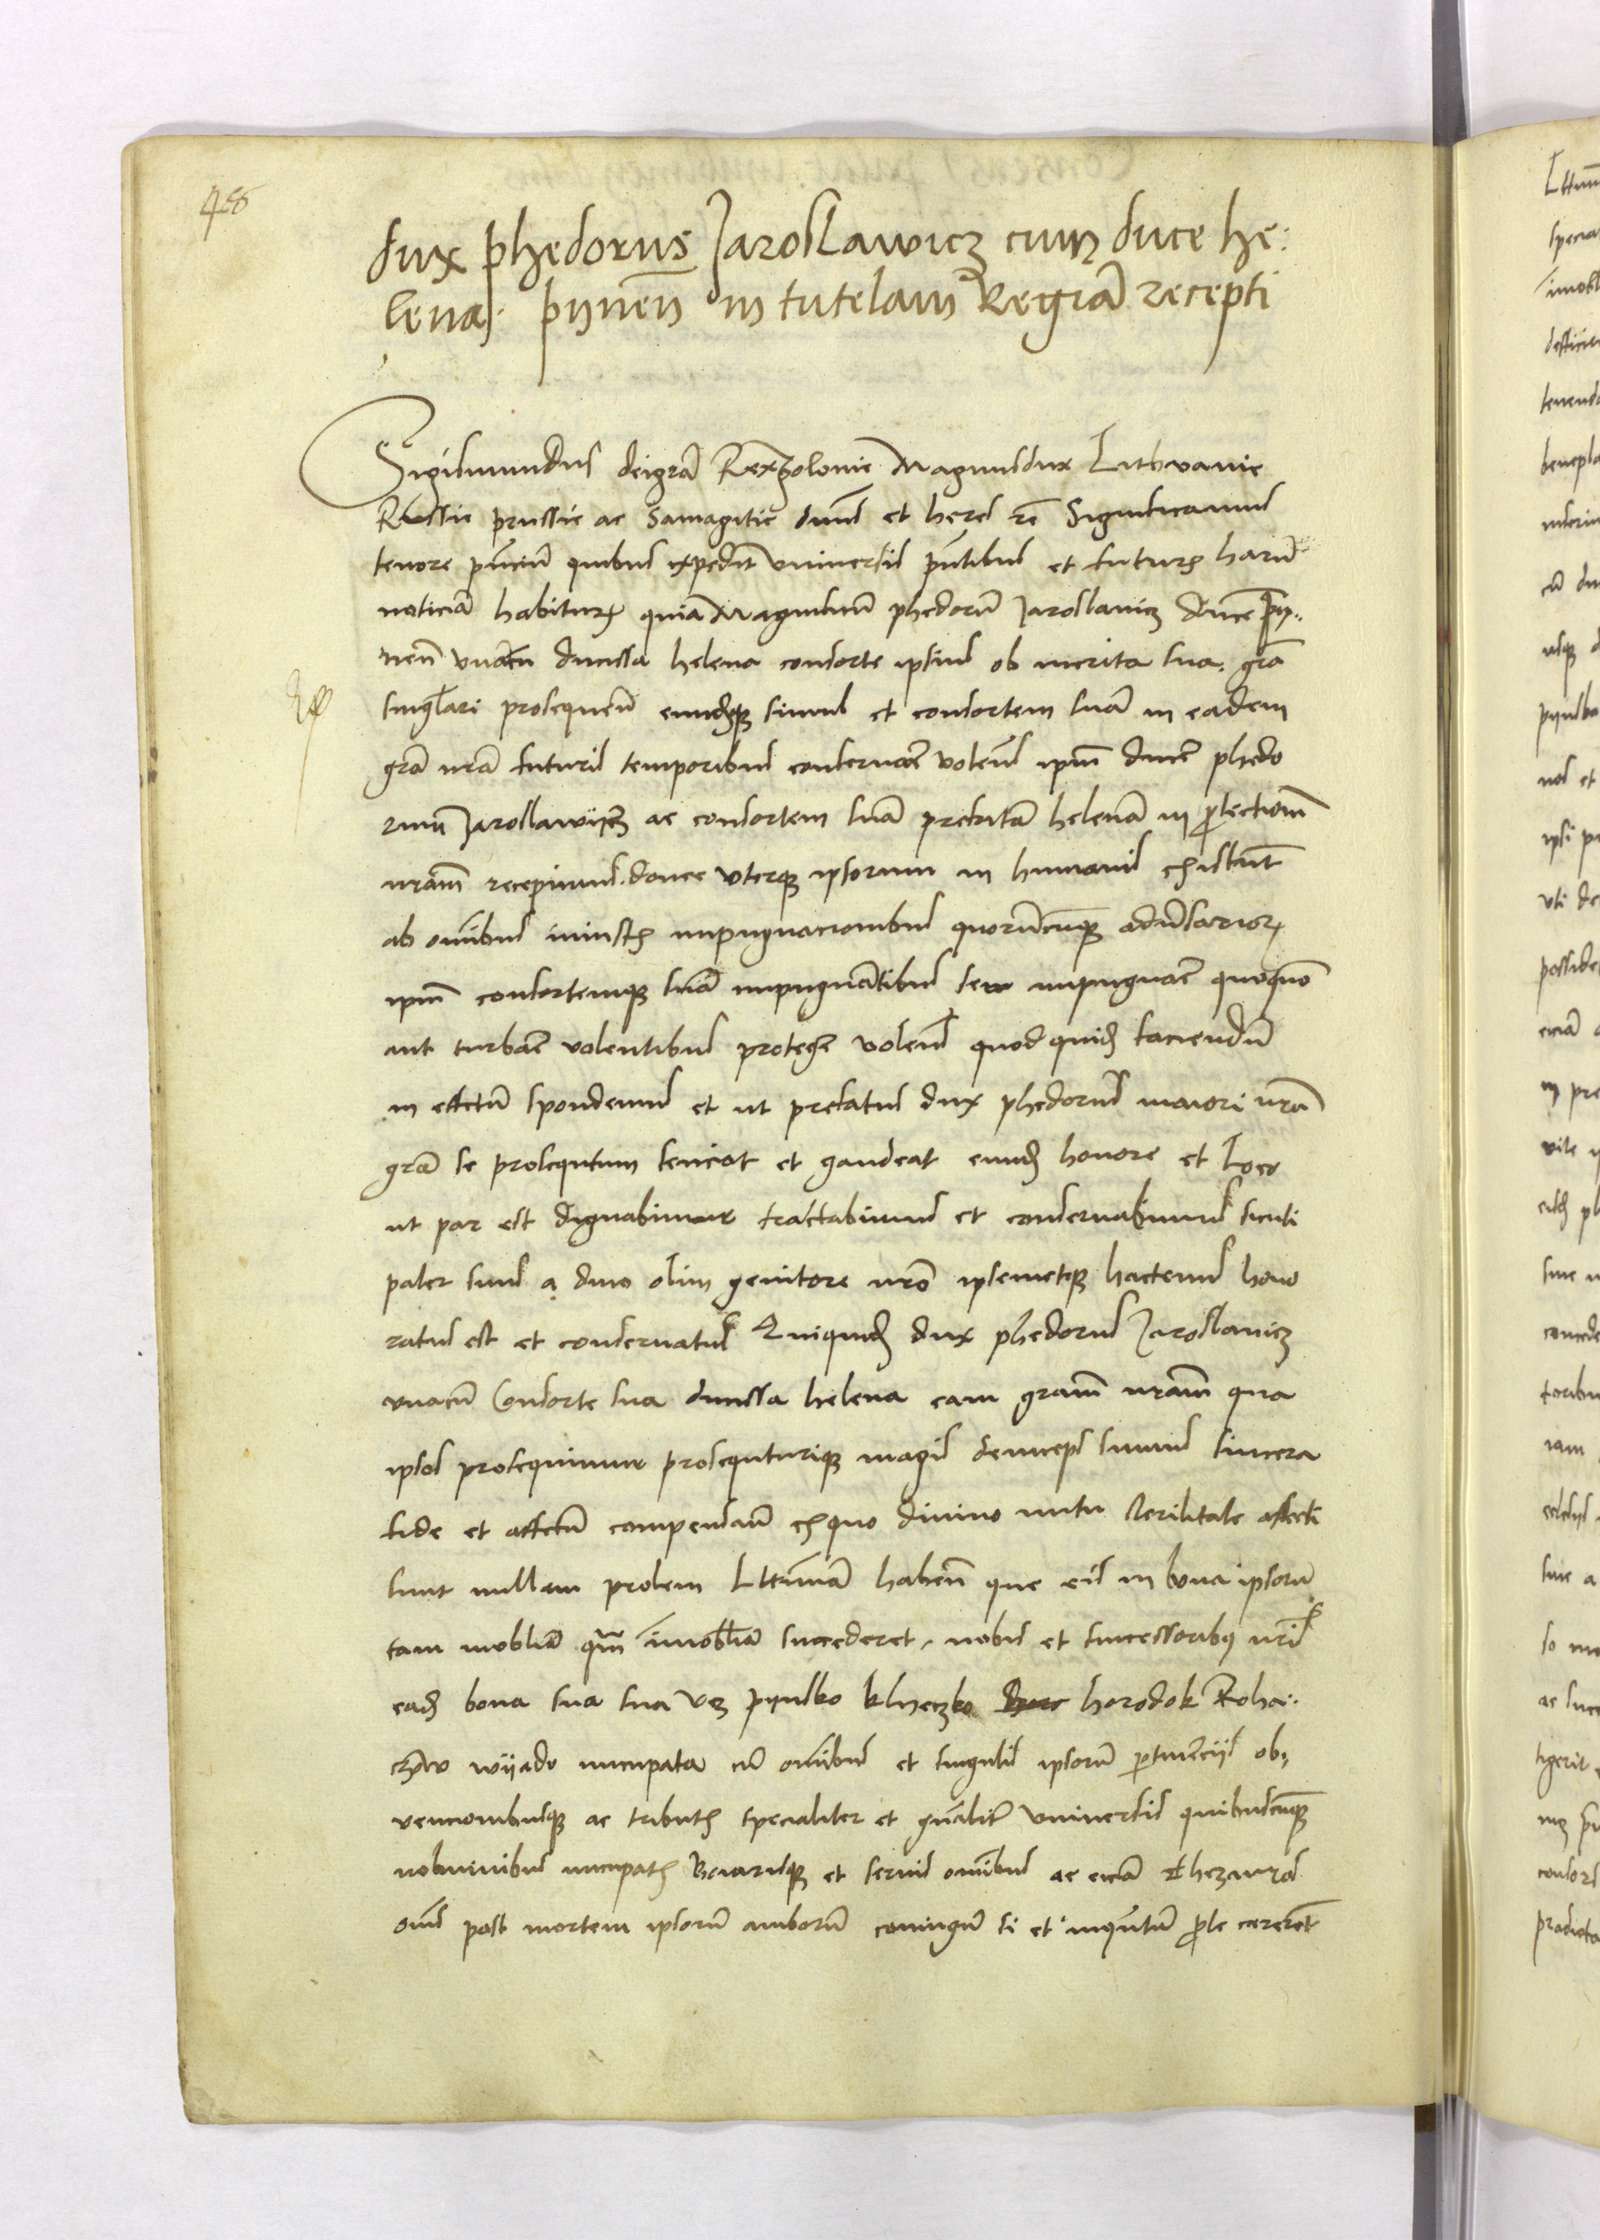 48
dux phedorus Jaroslawicz cum duce he:
lena: pijnen in tutelam Regiā recepti
Sigismundus dei grā Rex polonie Magnus dux Lithvanie
Russie prussie ac Samagitie dūns et heres rc Significamus
tenore pn̄ciū quibus expedit universis pn̄tibus et futuris harū
noticiā habituris quia Magnificū phedorū Jaroslavicz ducē pij..
nen̄ unacū ducissa helena consorte ipsius ob merita sua. grā
singlari prosequen̄ eundēque simul et consortem suā in eadem
grā nrā futuris temporibus conservare volens ipm̄ ducē phedo
rum Jaroslawijcz ac consortem suā prefatā helenā in protectionē
nram̄ recepimus. donec uterque ipsorum in humanis exisbunt
ab omībus iniustis impugnacionibus quorūcūque adversarior
ipm̄ consortemque suā impugnātibus seu impugnare quoquō
aut turbare volentibus proteg̃e volens quodquid faciendū
in effectū spondemus et ut prefatus dux phedorus maiori nrā
grā se prosequtum senciat et gaudeat eund̄ honore et Loco
ut par est dignabimur tractabimus et conservabimus sicuti
pater suus a divo olim genitore nrō ipsemetque hactenus hono
ratus est et conservatus Quiquid̄ dux phedorus Jaroslavicz
unacū Consorte sua ducissa helena eam gram̄ nram̄ qua
ipsos prosequimur prosequturique magis deinceps sumus sincera
fide et affectū compensaū exquo divino nutu sterilitate affecti
sunt nullam prolem Ltt̄imā haben̄ que eis in bona ipsorū
tam mobliā qm̄ īmobliā succederet, nobis et successoribus nrīs
ead̄ bona sua sua vcz pijnsko klheczko horodok Roha:
czow wijado nucupata cū omībus et singulis ipsorū ptinencijs ob,
vencionibusque ac tributis specialiter et gn̄alitr universis quibuscūque
nobminibus nucupatis et servis omībus ac eciā thezauros
om̄s post mortem ipsorū amborū coniugū si et inquātū ple carerēt